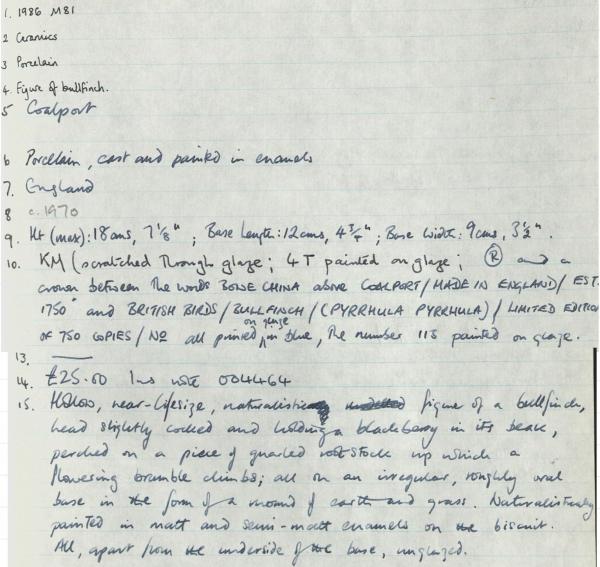 1. 1986 M81
2 Ceramics
3 Porcelain
4. Figure of bullfinch.
5 Coalport
6 Porcelain, cast and painted in enamels
7. England
8 c.1970
9. Ht (max): 18cms, 7 1/8"; Base Length: 12cms, 4 3/4"; Base Width: 9cms, 3 1/2".
10. KM (scratched through glaze; 4T painted on glaze; ® and a
crown between the words BONE CHINA above COALPORT/MADE IN ENGLAND/EST.
1750" and BRITISH BIRDS/BULLFINCH/(PYRRHULA PYRRHULA)/LIMITED EDITION
OF 750 COPIES/No all printed on glaze in blue, the number 115 painted on glaze.
13. ——
14. £25.00 Ins note 004464
15. Hollow, near-lifesize, naturalistic figure of a bullfinch,
head slightly cocked and holding a blackberry in its beak,
perched on a piece of gnarled rootstock up which a
flowering bramble climbs; all on an irregular, roughly oval
base in the form of a mound of earth and grass. Naturalistically
painted in matt and semi-matt enamels on the biscuit.
All, apart from the underside of the base, unglazed.